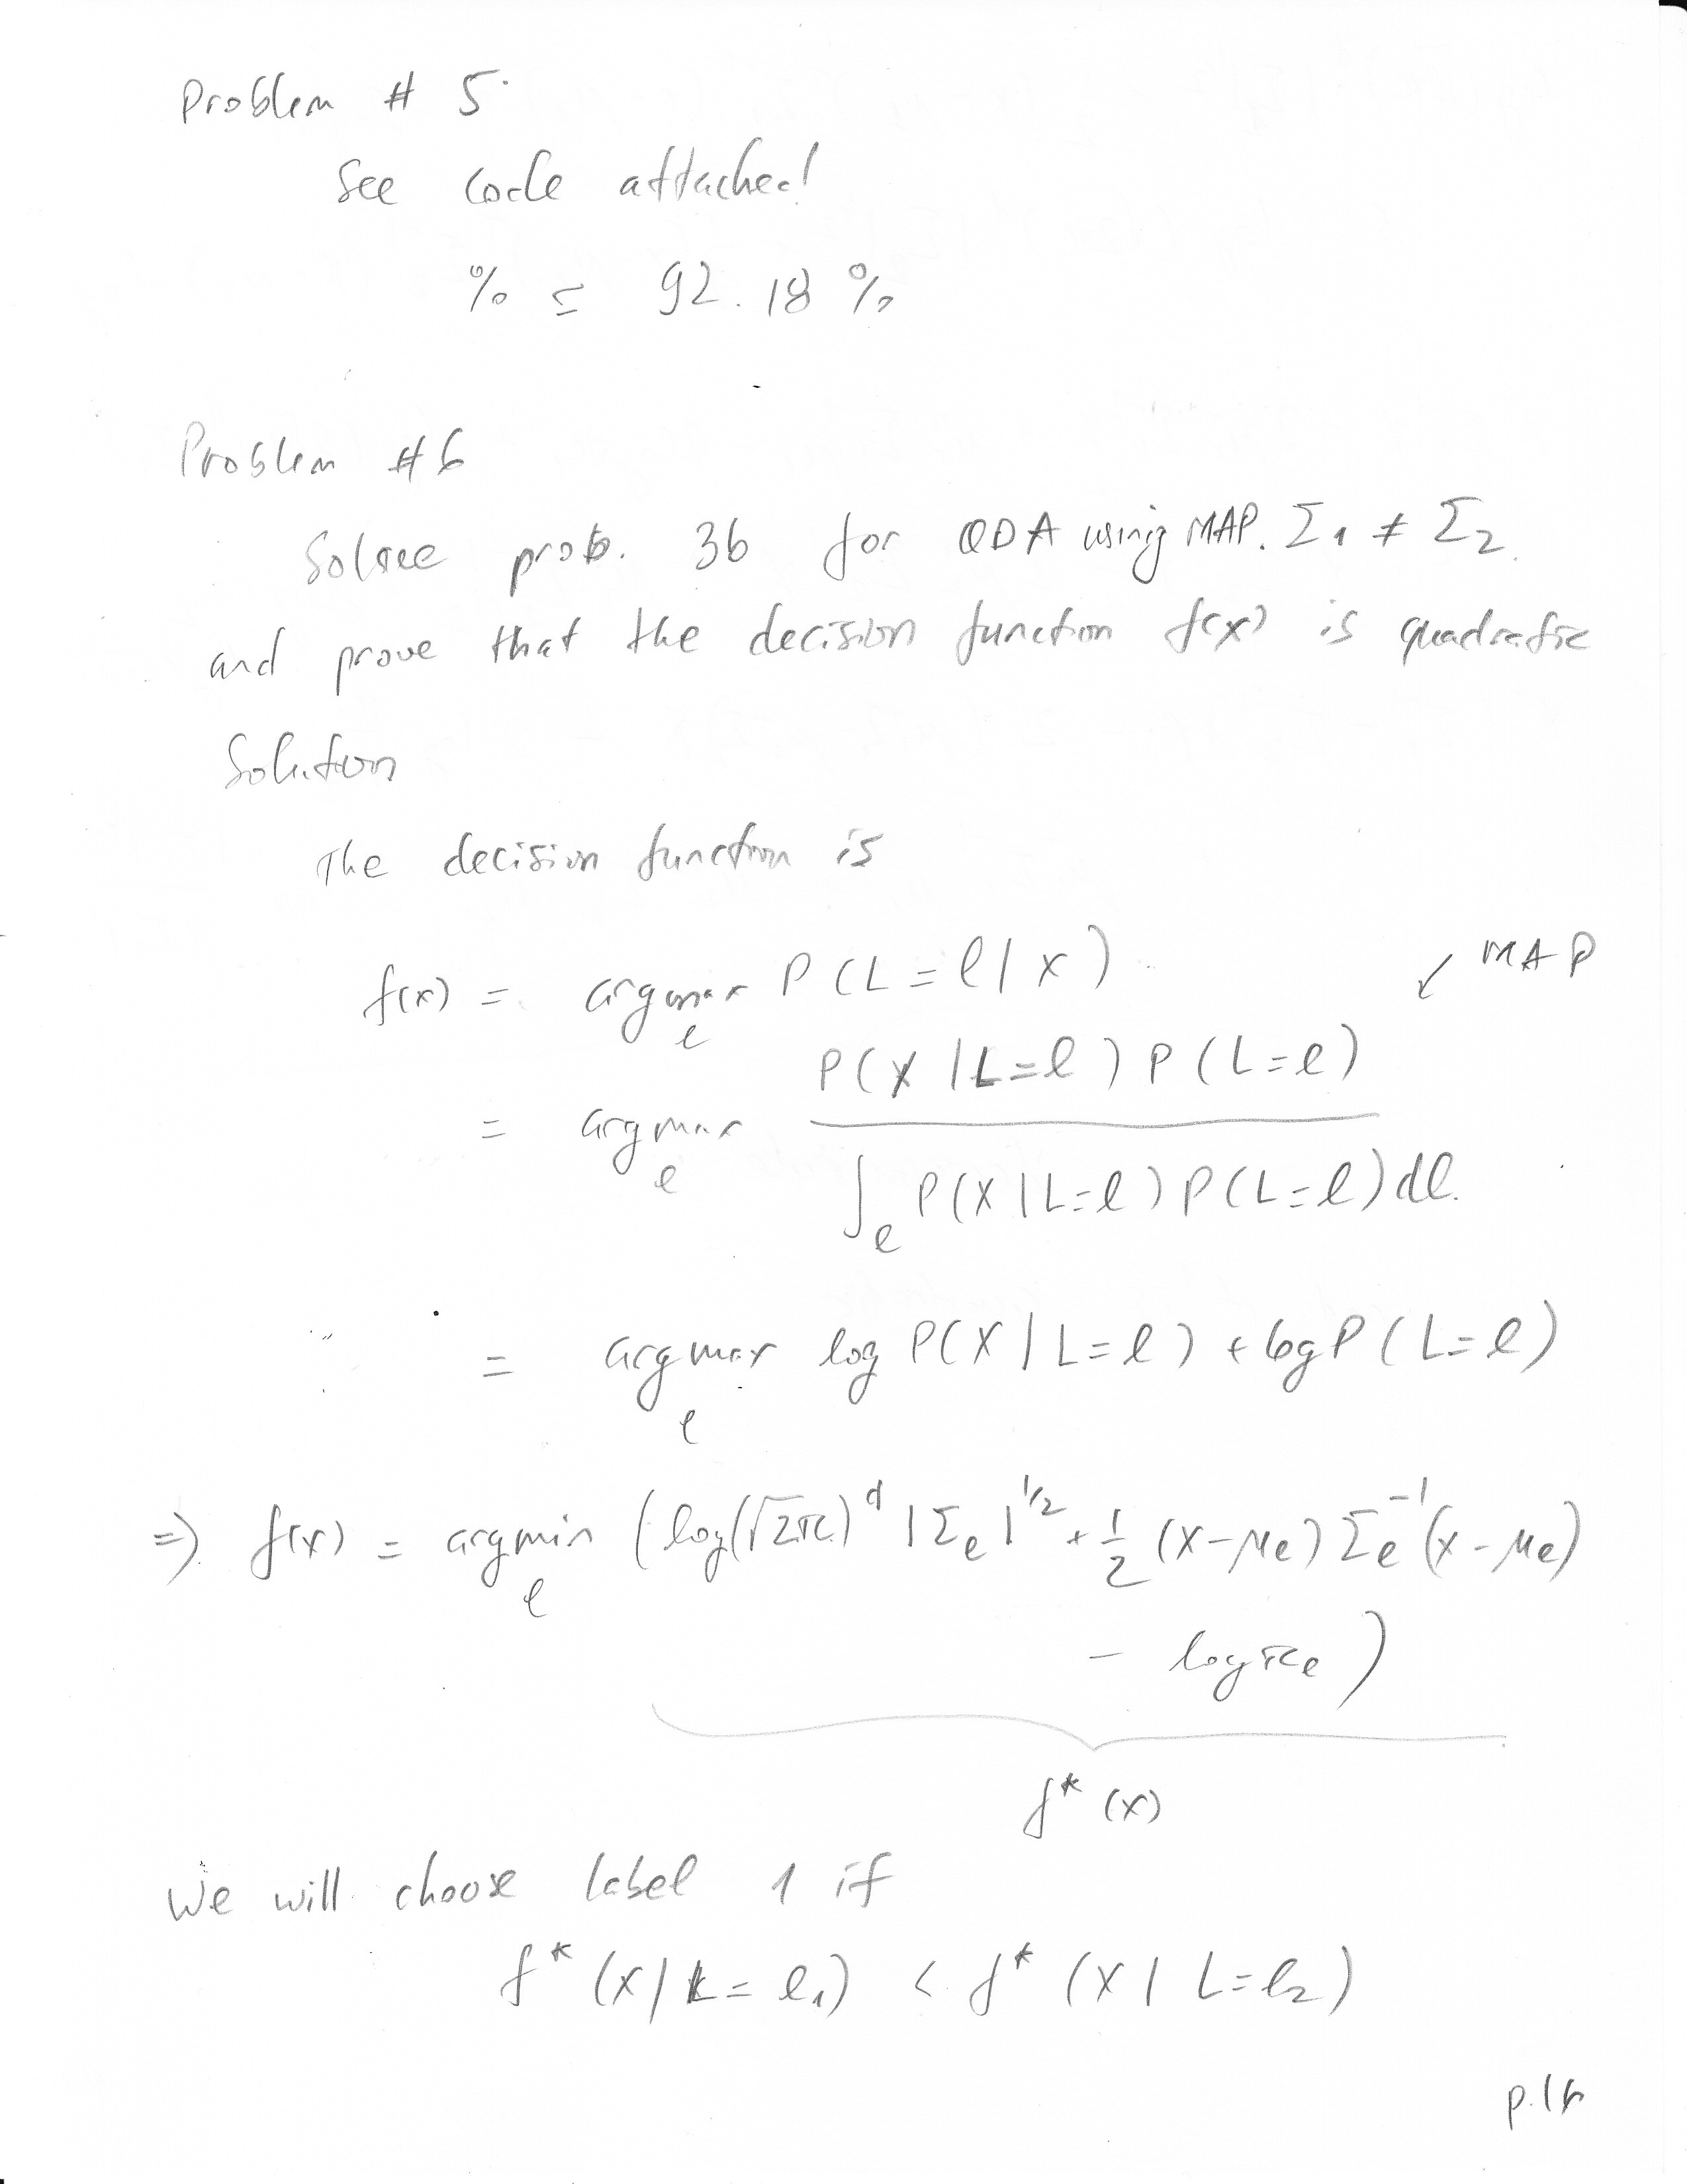 Problem # 5
See code attached
% = 92.18 %
Problem #6
Solve prob. 3b for QDA using MAP. Σ1 ≠ Σ2.
and prove that the decision function f(x) is quadratic
Solution
The decision function is
f(x) = argmax_l P(L = l | x)
↙ MAP
= argmax_l P(X | L=l) P(L=l) / ∫_l P(X | L=l) P(L=l) dl.
= argmax_l log P(X | L=l) + log P(L=l)
⇒ f(x) = argmin_l ( log(√2π)^d |Σ_l|^1/2 + 1/2 (x-μ_l) Σ_l^-1 (x-μ_l)
- log π_l )
f* (x)
We will choose label 1 if
f* (x | L = l_1) < f* (x | L = l_2)